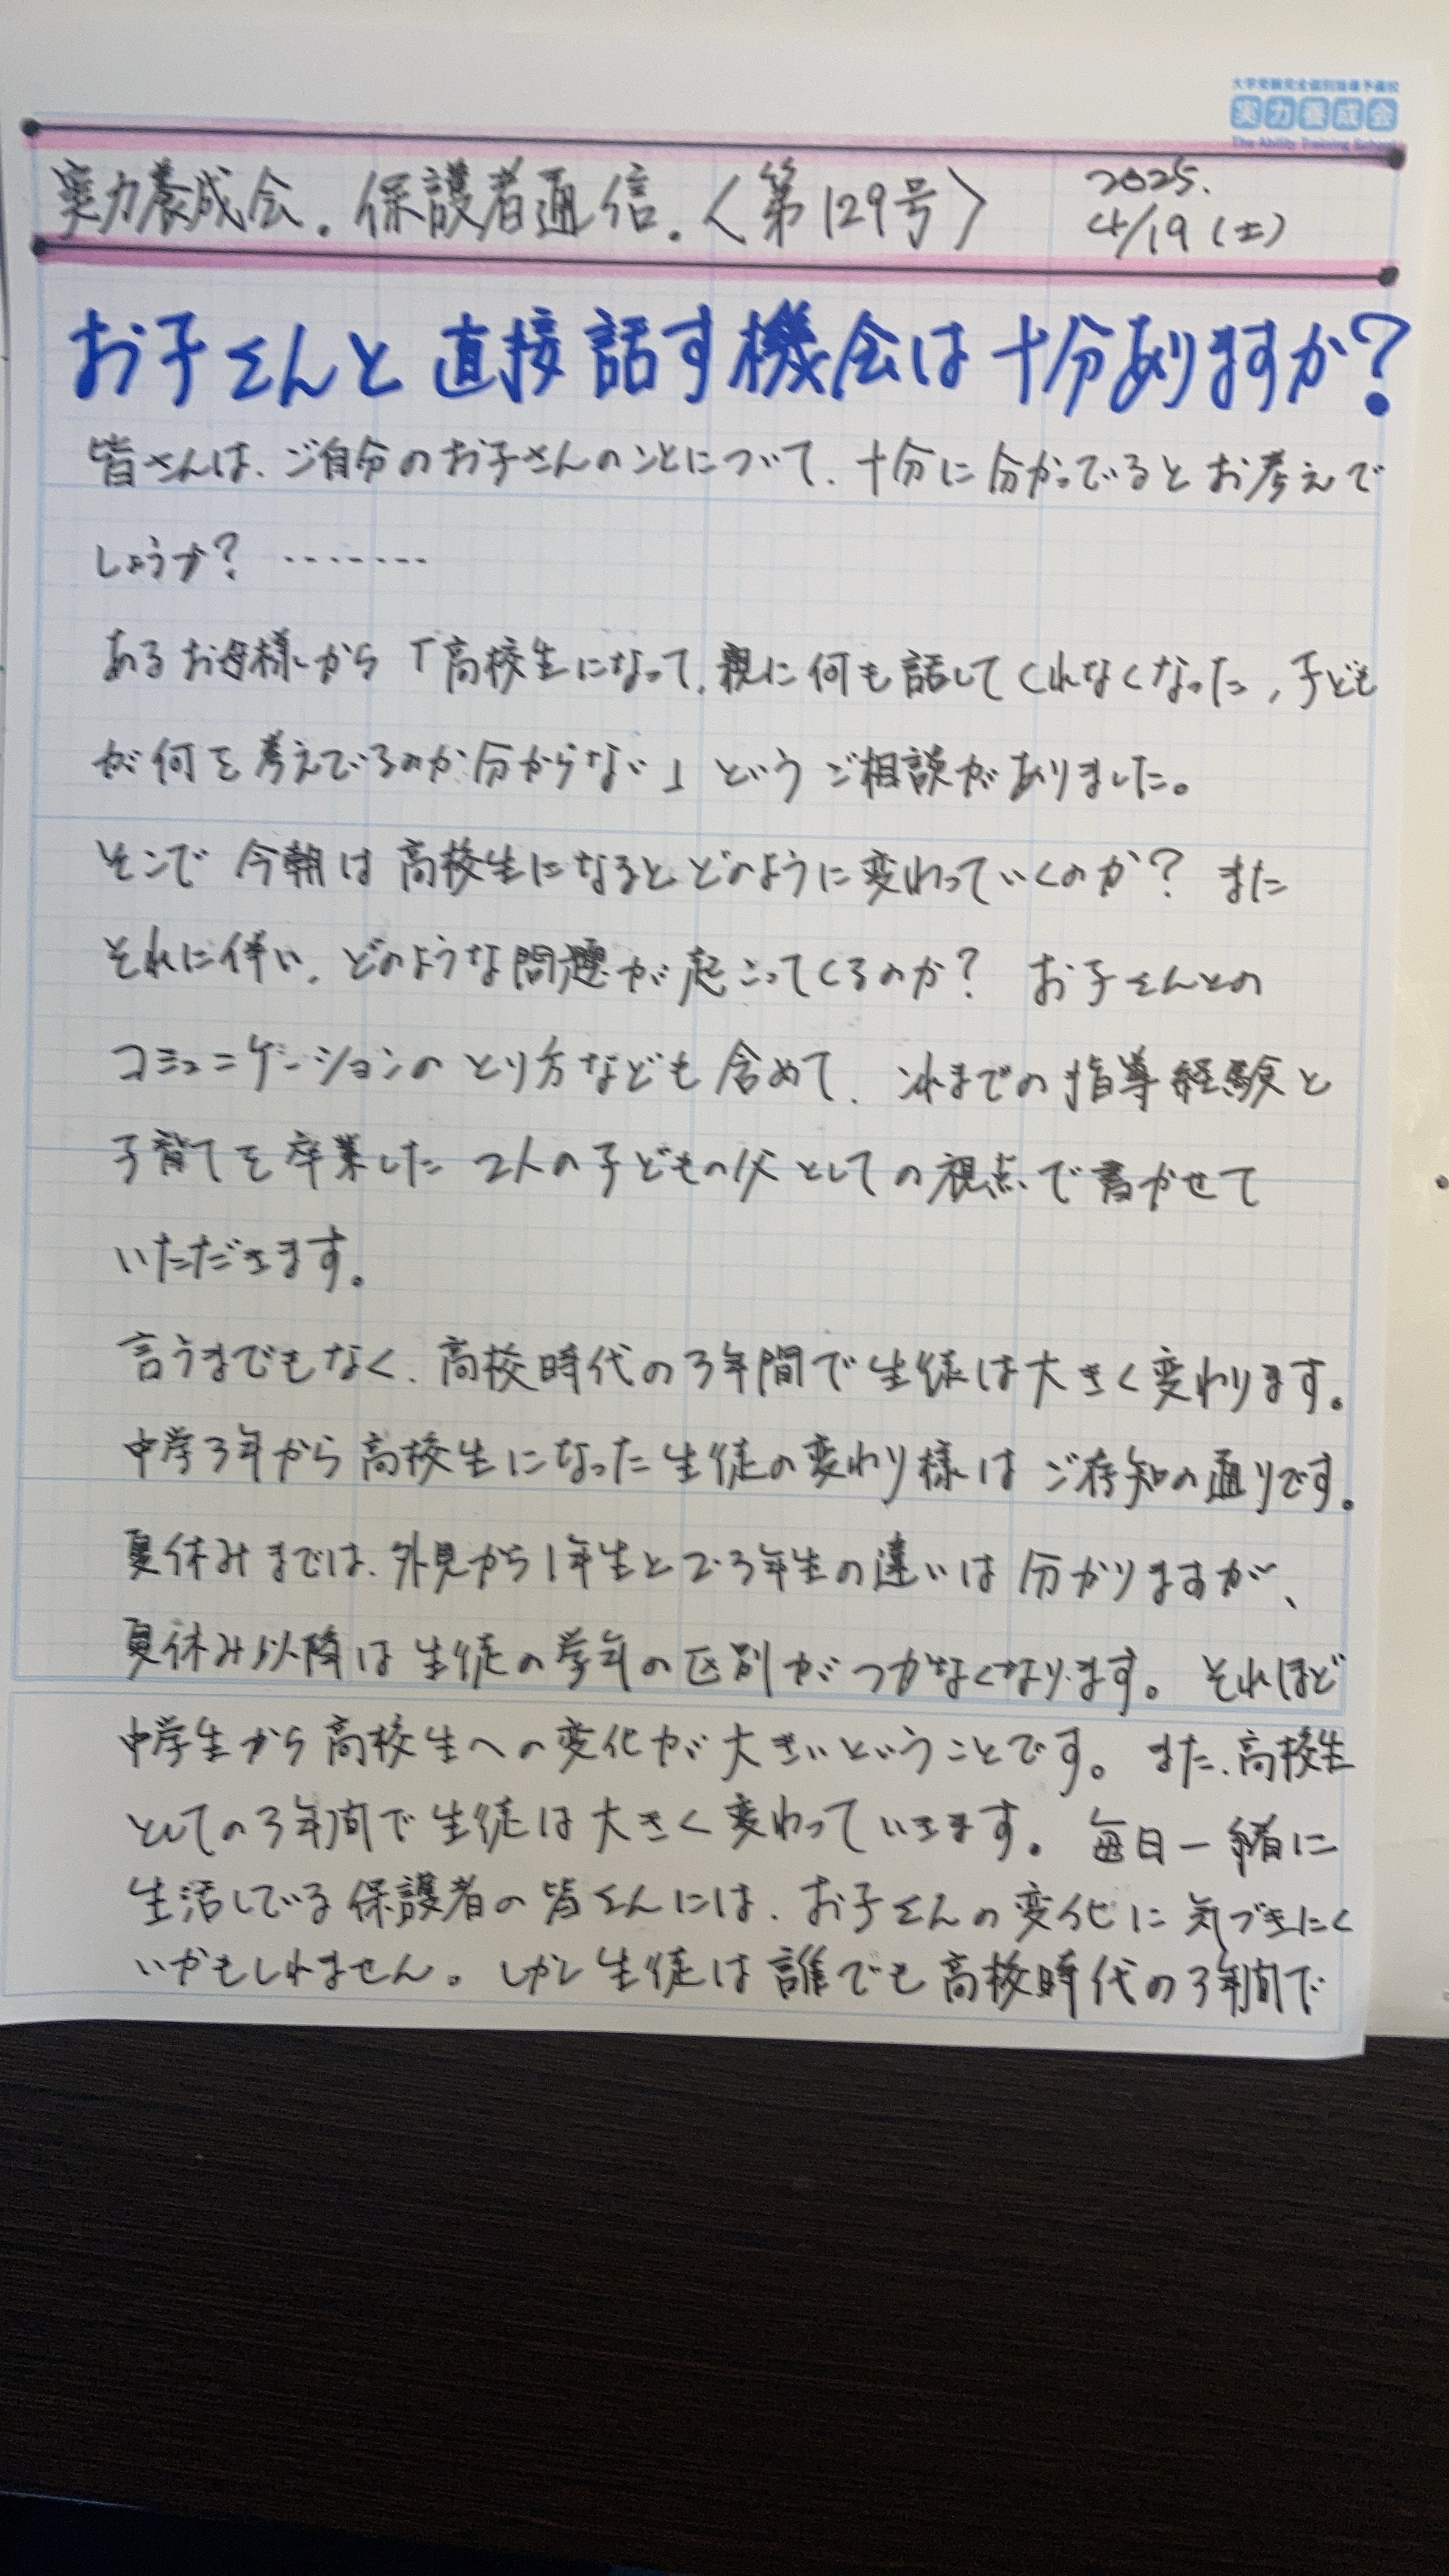 大学受験完全個別指導予備校
実力養成会
The Ability Training School
実力養成会。保護者通信。〈第129号〉
2025.
4/19(土)
お子さんと直接話す機会は十分ありますか?
皆さんは、ご自分のお子さんのことについて、十分に分かっているとお考えで
しょうか? ‥‥‥‥
あるお母様から「高校生になって、親に何も話してくれなくなった、子ども
が何を考えているのか分からない」というご相談がありました。
そこで今朝は高校生になると、どのように変わっていくのか? また
それに伴い、どのような問題が起こってくるのか? お子さんとの
コミュニケーションのとり方なども含めて、これまでの指導経験と
子育てを卒業した2人の子どもの父としての視点で書かせて
いただきます。
言うまでもなく、高校時代の3年間で生徒は大きく変わります。
中学3年から高校生になった生徒の変わり様はご存知の通りです。
夏休みまでは、外見から1年生と2・3年生の違いは分かりますが、
夏休み以降は生徒の学年の区別がつかなくなります。それほど
中学生から高校生への変化が大きいということです。また、高校生
としての3年間で生徒は大きく変わっていきます。毎日一緒に
生活している保護者の皆さんには、お子さんの変化に気づきにく
いかもしれません。しかし生徒は誰でも高校時代の3年間で